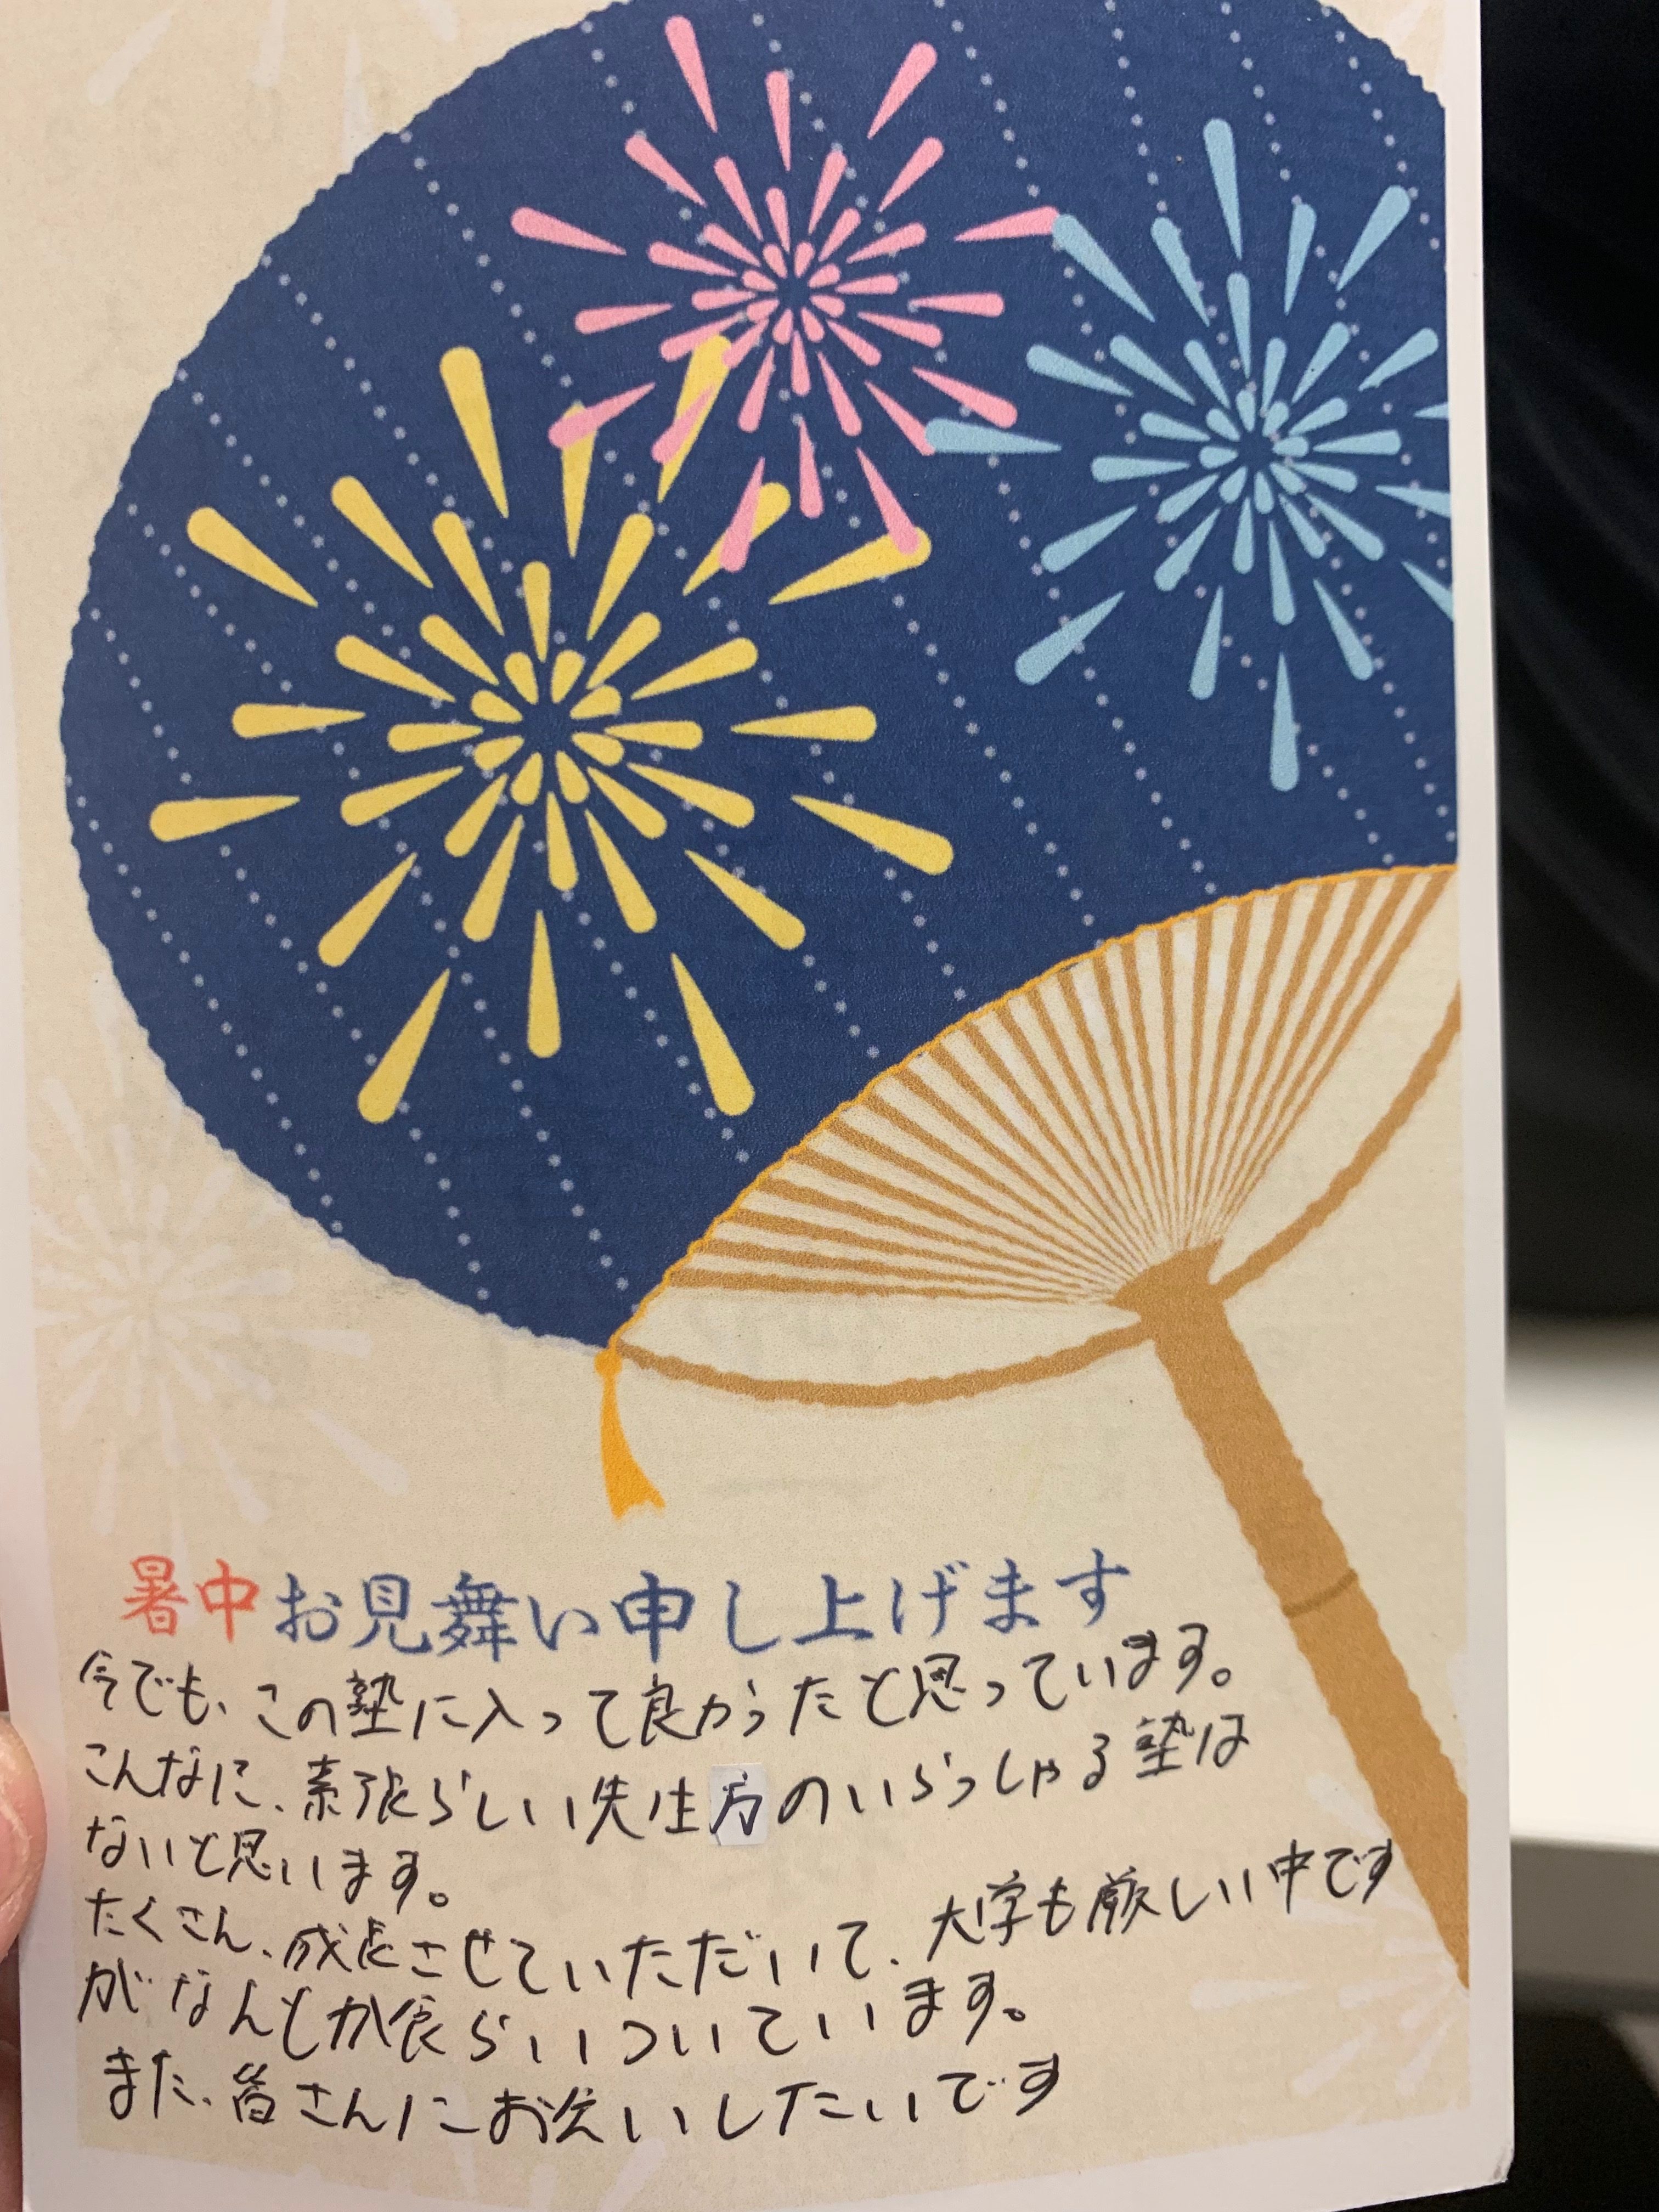 暑中お見舞い申し上げます
今でも、この塾に入って良かったと思っています。
こんなに、素張らしい先生方のいらっしゃる塾は
ないと思います。
たくさん、成長させていただいて、大学も厳しい中です
がなんとか食らいついています。
また、皆さんにお会いしたいです